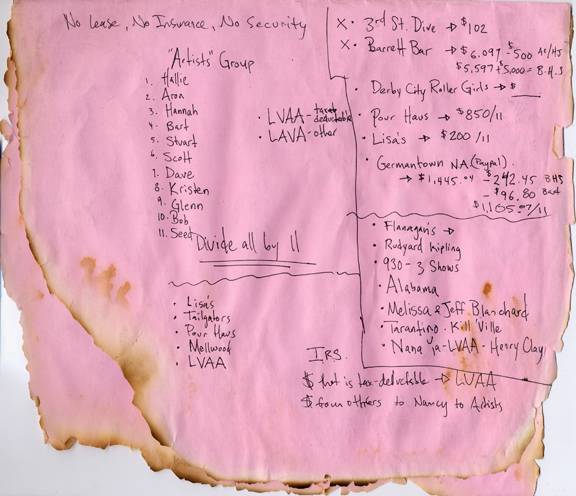 No Lease, No Insurance, No Security
"Artists" Group
1. Hallie
2. Aron
3. Hannah
4. Bart
5. Stuart
6. Scott
7. Dave
8. Kristen
9. Glenn
10. Bob
11. Seed
• LVAA - taxes deductable
• LAVA - other
Divide all by 11
• Lisa's
• Tailgators
• Pour Haus
• Mellwood
• LVAA
X • 3rd St. Dive → $102
X • Barrett Bar → $6,097 - $500
$5,597 + $5,000 = B.H.S
• Derby City Roller Girls → $
• Pour Haus → $850/11
• Lisa's → $200/11
• Germantown NA (Paypal)
→ $1,445.04 - $242.45 BHS
- $96.80 Bart
$1,105.07/11
• Flanagan's →
• Rudyard Kipling
• 930 - 3 Shows
• Alabama
• Melissa & Jeff Blanchard
• Tarantino - Kill Ville
• Nana ya - LVAA - Henry Clay
IRS.
$ that is tax-deductable → LVAA
$ from others to Nancy to Artists